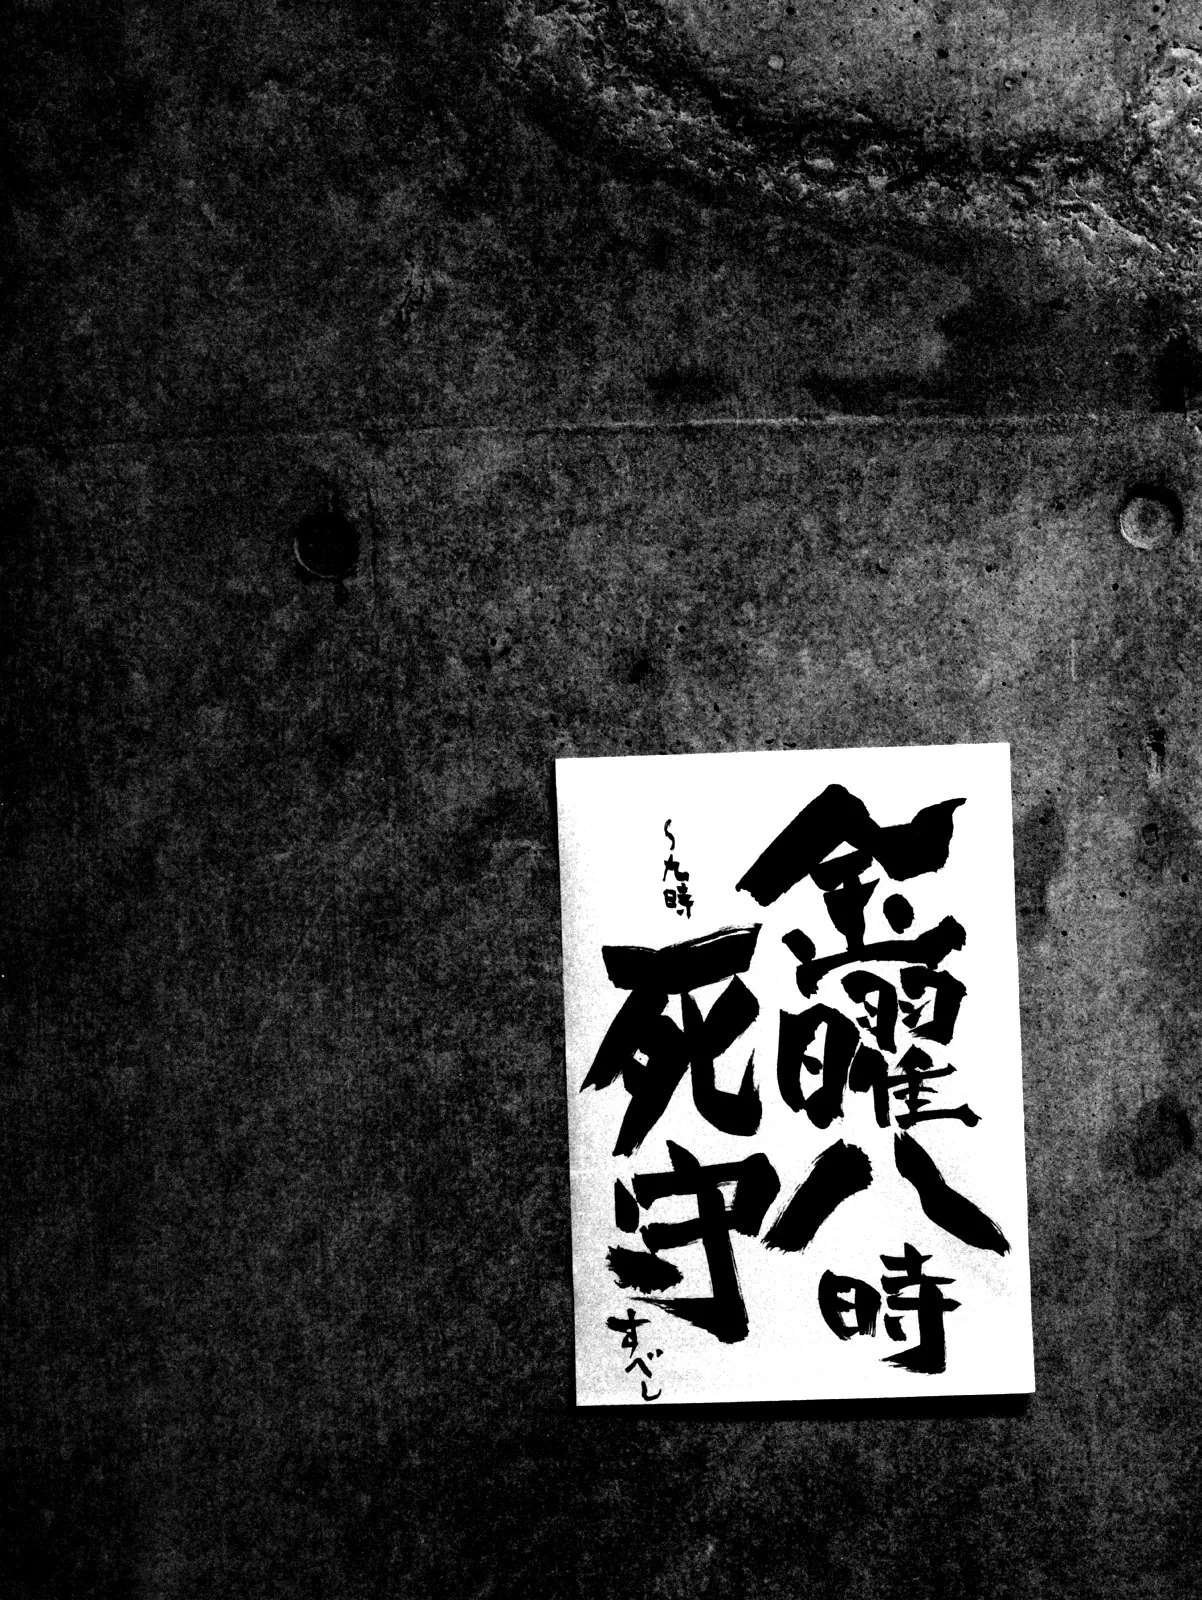 金曜八時
〜九時
死守すべし